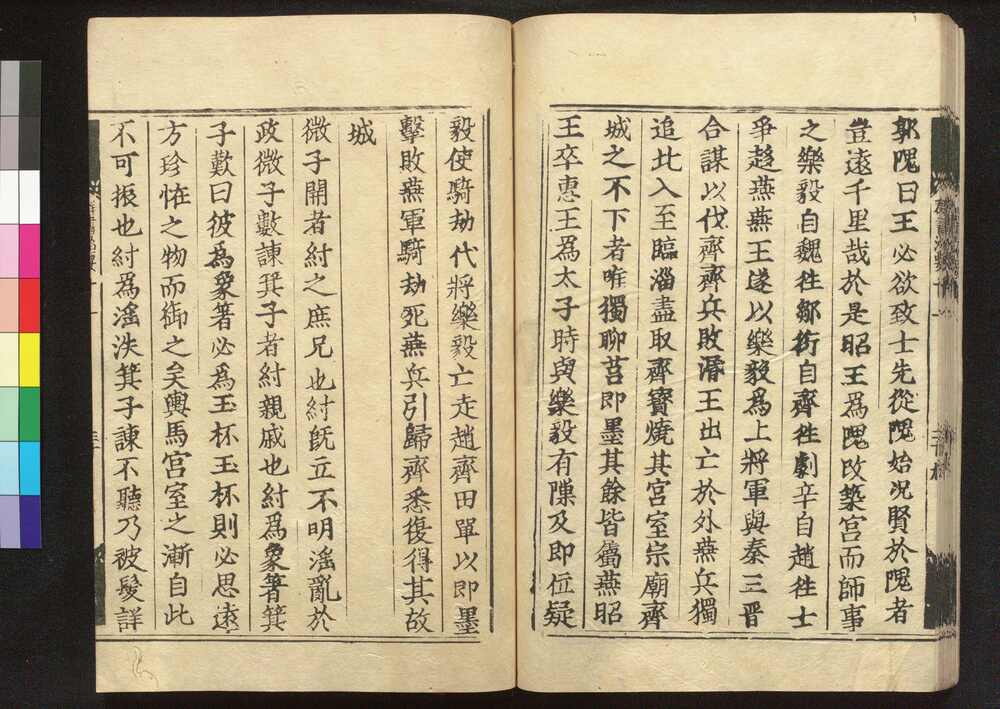 郭隗曰王必欲致士先從隗始况賢於隗者
豈遠千里哉於是昭王爲隗改築宮而師事
之樂毅自魏徃鄒衍自齊徃劇辛自趙徃士
爭趍燕燕王遂以樂毅爲上將軍與秦三晋
合謀以伐齊齊兵敗湣王出亡於外燕兵獨
追北入至臨淄盡取齊寳燒其宮室宗廟齊
城之不下者唯獨聊莒即墨其餘皆屬燕昭
王卒惠王爲太子時與樂毅有隟及即位疑
毅使騎劫代將樂毅亡走趙齊田單以即墨
擊敗燕軍騎劫死燕兵引歸齊悉復得其故
城
微子開者紂之庶兄也紂旣立不明滛亂於
政微子數諫箕子者紂親戚也紂爲象箸箕
子歎曰彼爲象箸必爲玉杯玉杯則必思遠
方珍恠之物而御之矣輿馬宮室之漸自此
不可振也紂爲滛泆箕子諫不聽乃被髮詳